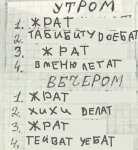 УТРОМ
1. ЖРАТ
2. ТАБИБИТУ ОЕБАТ
3. ЖРАТ
4. ВМЕНЮ ЛЕТАТ
ВЕЧЕРОМ
1. ЖРАТ
2. ХИХИ ДЕЛАТ
3. ЖРАТ
4. ТЕЙВАТ УЕБАТ